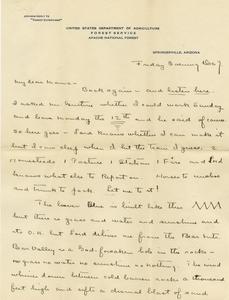 ADDRESS REPLY TO
"FOREST SUPERVISOR"
UNITED STATES DEPARTMENT OF AGRICULTURE
FOREST SERVICE
APACHE NATIONAL FOREST
SPRINGERVILLE, ARIZONA
Friday Evening
My dear Mama -
Back again - and listen here.
I asked Mr whether I could work Sunday
and leave Monday the 12th and he said of course.
So here goes - Lord knows whether I can make it
but I can sleep when I hit the Train I guess. 2
Homesteads 1 Pasture 1 Stations 1 Fire and Lord
knows what else to Report on Horses to
and trunk to pack. Let me to it!
The lower Blue is built like this
but there is grass and water and sunshine and
its O.K. but Lord deliver me from the Bear
Bear Valley is a God-forsaken hole in the rocks -
no grass no water no sunshine no nothing. The wind
whines down between cold barren rocks a thousand
feet high and sifts a dismal blast of sand